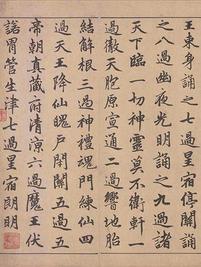 王束身誦之七過星宿停關誦
之八過幽夜光明誦之九過諸
天下臨一切神靈莫不衛軒一
過徹天胞原宣通二過響地胎
結解根三過神禮魂門練仙四
過天王降仙魄戶閉關五過五
帝朝真藏府清涼六過魔王伏
諾胃管生津七過星宿朗明